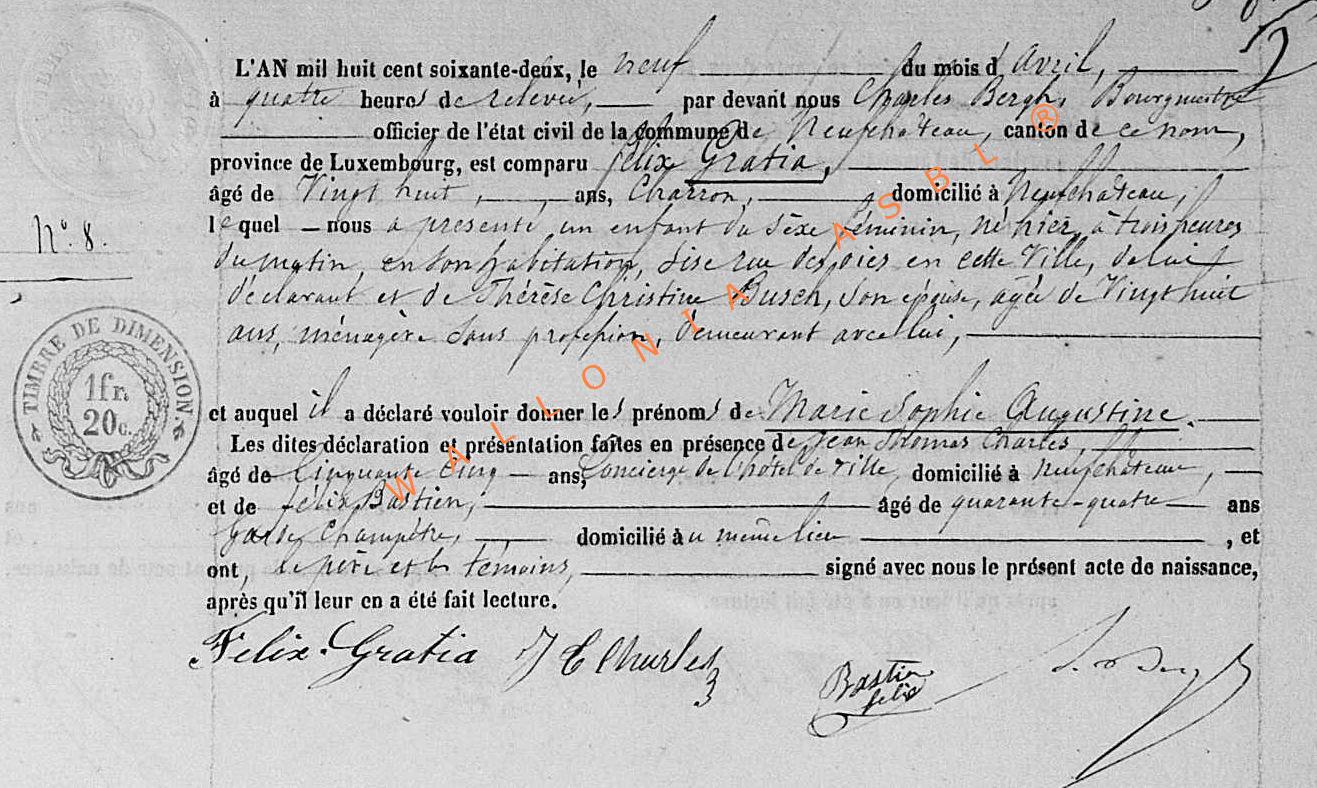 L'AN mil huit cent soixante-deux, le neuf du mois d'avril,
à quatre heures de relevée, par devant nous Charles Bergh, Bourgmestre
officier de l'état civil de la commune de Neufchateau, canton de ce nom,
province de Luxembourg, est comparu félix Gratia,
âgé de Vingt huit, ans, Charron, domicilié à Neufchateau,
lequel nous a présenté un enfant du sèxe féminin, né hier, à trois heures
du matin, en son habitation, sise rue des oies en cette Ville, de lui
déclarant et de Thérèse Christine Busch, son épouse, agée de Vingt huit
ans, ménagère sans profession, demeurant avec lui,
N°. 8.
TIMBRE DE DIMENSION
1fr.
20c.
et auquel il a déclaré vouloir donner les prénoms de Marie Sophie Augustine.
Les dites déclaration et présentation faites en présence de Jean Thomas Charles,
âgé de Cinquante Cinq ans, Concierge de l'hôtel de Ville, domicilié à Neufchateau,
et de félix Bastien, âgé de quarante-quatre ans
Garde Champêtre, domicilié au même lieu, et
ont, le père et les témoins, signé avec nous le présent acte de naissance,
après qu'il leur en a été fait lecture.
Felix Gratia J T Charles
Bastien
felix
WALLONIA ASBL ®